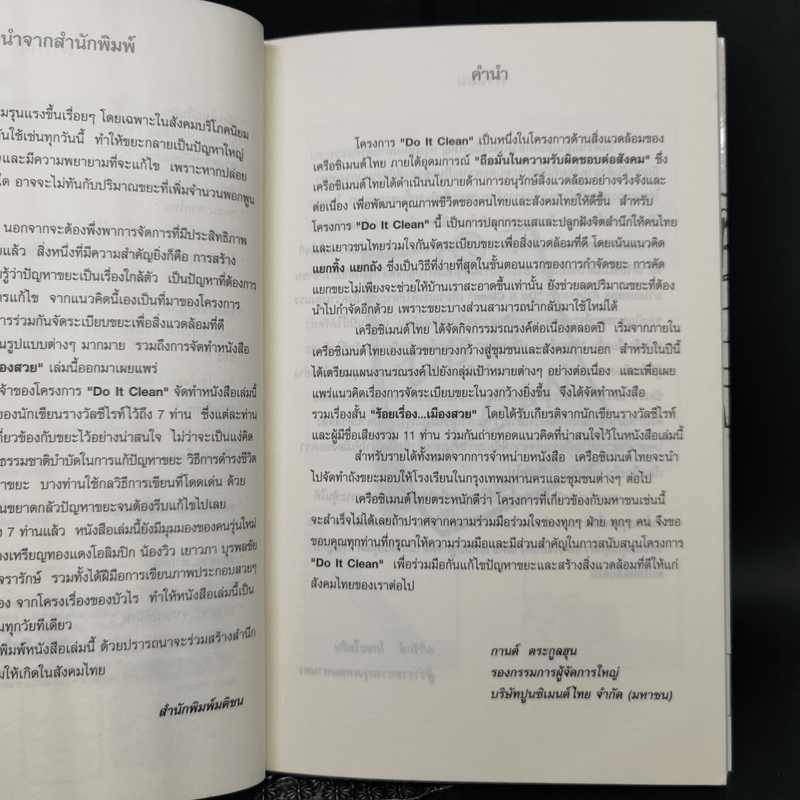 นำจากสำนักพิมพ์
มรุนแรงขึ้นเรื่อยๆ โดยเฉพาะในสังคมบริโภคนิยม
นใช้เช่นทุกวันนี้ ทำให้ขยะกลายเป็นปัญหาใหญ่
และมีความพยายามที่จะแก้ไข เพราะหากปล่อย
ใด อาจจะไม่ทันกับปริมาณขยะที่เพิ่มจำนวนพอกพูน
นอกจากจะต้องพึ่งพาการจัดการที่มีประสิทธิภาพ
ยแล้ว สิ่งหนึ่งที่มีความสำคัญยิ่งก็คือ การสร้าง
รู้ว่าปัญหาขยะเป็นเรื่องใกล้ตัว เป็นปัญหาที่ต้องการ
การแก้ไข จากแนวคิดนี้เองเป็นที่มาของโครงการ
การร่วมกันจัดระเบียบขยะเพื่อสิ่งแวดล้อมที่ดี
นรูปแบบต่างๆ มากมาย รวมถึงการจัดทำหนังสือ
มืองสวย" เล่มนี้ออกมาเผยแพร่
จ้าของโครงการ "Do It Clean" จัดทำหนังสือเล่มนี้
ของนักเขียนรางวัลซีไรท์ไว้ถึง 7 ท่าน ซึ่งแต่ละท่าน
กี่ยวข้องกับขยะไว้อย่างน่าสนใจ ไม่ว่าจะเป็นแง่คิด
ธรรมชาติบำบัดในการแก้ปัญหาขยะ วิธีการดำรงชีวิต
าขยะ บางท่านใช้กลวิธีการเขียนที่โดดเด่น ด้วย
นขยาดกลัวปัญหาขยะจนต้องรีบแก้ไขไปเลย
ง 7 ท่านแล้ว หนังสือเล่มนี้ยังมีมุมมองของคนรุ่นใหม่
องเหรียญทองแดงโอลิมปิก น้องวิว เยาวภา บุรพลชัย
จรารักษ์ รวมทั้งได้ฝีมือการเขียนภาพประกอบสวยๆ
อง จากโครงเรื่องของบัวไร ทำให้หนังสือเล่มนี้เป็น
นทุกวัยทีเดียว
พิมพ์หนังสือเล่มนี้ ด้วยปรารถนาจะร่วมสร้างสำนึก
มให้เกิดในสังคมไทย
สำนักพิมพ์มติชน
คำนำ
โครงการ "Do It Clean" เป็นหนึ่งในโครงการด้านสิ่งแวดล้อมของ
เครือซิเมนต์ไทย ภายใต้อุดมการณ์ "ถือมั่นในความรับผิดชอบต่อสังคม" ซึ่ง
เครือซิเมนต์ไทยได้ดำเนินนโยบายด้านการอนุรักษ์สิ่งแวดล้อมอย่างจริงจังและ
ต่อเนื่อง เพื่อพัฒนาคุณภาพชีวิตของคนไทยและสังคมไทยให้ดีขึ้น สำหรับ
โครงการ "Do It Clean" นี้ เป็นการปลุกกระแสและปลูกฝังจิตสำนึกให้คนไทย
และเยาวชนไทยร่วมใจกันจัดระเบียบขยะเพื่อสิ่งแวดล้อมที่ดี โดยเน้นแนวคิด
แยกทิ้ง แยกถัง ซึ่งเป็นวิธีที่ง่ายที่สุดในขั้นตอนแรกของการกำจัดขยะ การคัด
แยกขยะไม่เพียงจะช่วยให้บ้านเราสะอาดขึ้นเท่านั้น ยังช่วยลดปริมาณขยะที่ต้อง
นำไปกำจัดอีกด้วย เพราะขยะบางส่วนสามารถนำกลับมาใช้ใหม่ได้
เครือซิเมนต์ไทย ได้จัดกิจกรรมรณรงค์ต่อเนื่องตลอดปี เริ่มจากภายใน
เครือซิเมนต์ไทยเองแล้วขยายวงกว้างสู่ชุมชนและสังคมภายนอก สำหรับในปีนี้
ได้เตรียมแผนงานรณรงค์ไปยังกลุ่มเป้าหมายต่างๆ อย่างต่อเนื่อง และเพื่อเผย
แพร่แนวคิดเรื่องการจัดระเบียบขยะในวงกว้างยิ่งขึ้น จึงได้จัดทำหนังสือ
รวมเรื่องสั้น "ร้อยเรื่อง...เมืองสวย" โดยได้รับเกียรติจากนักเขียนรางวัลซีไรท์
และผู้มีชื่อเสียงรวม 11 ท่าน ร่วมกันถ่ายทอดแนวคิดที่น่าสนใจไว้ในหนังสือเล่มนี้
สำหรับรายได้ทั้งหมดจากการจำหน่ายหนังสือ เครือซิเมนต์ไทยจะนำ
ไปจัดทำถังขยะมอบให้โรงเรียนในกรุงเทพมหานครและชุมชนต่างๆ ต่อไป
เครือซิเมนต์ไทยตระหนักดีว่า โครงการที่เกี่ยวข้องกับมหาชนเช่นนี้
จะสำเร็จไม่ได้เลยถ้าปราศจากความร่วมมือร่วมใจของทุกๆ ฝ่าย ทุกๆ คน จึงขอ
ขอบคุณทุกท่านที่กรุณาให้ความร่วมมือและมีส่วนสำคัญในการสนับสนุนโครงการ
"Do It Clean" เพื่อร่วมมือกันแก้ไขปัญหาขยะและสร้างสิ่งแวดล้อมที่ดีให้แก่
สังคมไทยของเราต่อไป
กานต์ ตระกูลฮุน
รองกรรมการผู้จัดการใหญ่
บริษัทปูนซิเมนต์ไทย จำกัด (มหาชน)